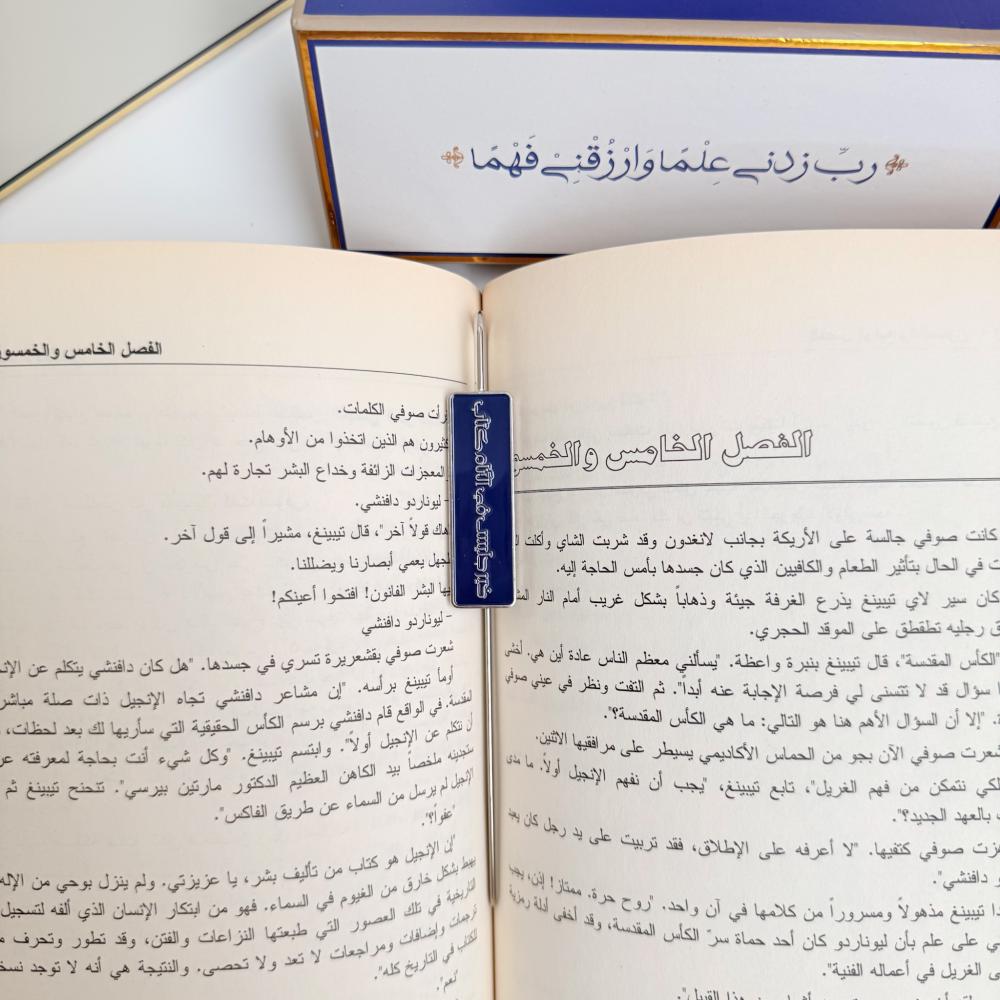 ربِّ زدني عِلْمًا وَارْزُقْنِي فَهْمًا
الفصل الخامس والخمسو
كانت صوفي جالسة على الأريكة بجانب لانغدون وقد شربت الشاي وأكلت
في الحال بتأثير الطعام والكافيين الذي كان جسدها بأمس الحاجة إليه.
كان سير لاي تيبينغ يذرع الغرفة جيئة وذهاباً بشكل غريب أمام النار
رجليه تطقطق على الموقد الحجري.
"الكأس المقدسة"، قال تيبينغ بنبرة واعظة. "يسألني معظم الناس عادة أين هي. أخشى
سؤال قد لا تتسنى لي فرصة الإجابة عنه أبداً". ثم التفت ونظر في عيني صوفي
"إلا أن السؤال الأهم هنا هو التالي: ما هي الكأس المقدسة؟".
شعرت صوفي الآن بجو من الحماس الأكاديمي يسيطر على مرافقيها الاثنين.
لكي نتمكن من فهم الغريل"، تابع تيبينغ، "يجب أن نفهم الإنجيل أولاً. ما مدى
بالعهد الجديد؟".
هزت صوفي كتفيها. "لا أعرفه على الإطلاق، فقد تربيت على يد رجل كان يعبد
دافنشي".
تيبينغ مذهولاً ومسروراً من كلامها في آن واحد. "روح حرة. ممتاز! إذن، يجب
على علم بأن ليوناردو كان أحد حماة سرّ الكأس المقدسة، وقد أخفى أدلة رمزية
على الغريل في أعماله الفنية".
خير جليس في الأنام كتاب
الفصل الخامس والخمسو
صوفي الكلمات.
كثيرون هم الذين اتخذوا من الأوهام.
المعجزات الزائفة وخداع البشر تجارة لهم.
- ليوناردو دافنشي.
هاك قولاً آخر"، قال تيبينغ، مشيراً إلى قول آخر.
الجهل يعمي أبصارنا ويضللنا.
البشر الفانون! افتحوا أعينكم!
- ليوناردو دافنشي
شعرت صوفي بقشعريرة تسري في جسدها. "هل كان دافنشي يتكلم عن
أومأ تيبينغ برأسه. "إن مشاعر دافنشي تجاه الإنجيل ذات صلة
المقدسة. في الواقع قام دافنشي برسم الكأس الحقيقية التي سأريها لك بعد لحظات،
أن نتكلم عن الإنجيل أولاً". وابتسم تيبينغ. "وكل شيء أنت بحاجة لمعرفته
ستجدينه ملخصاً بيد الكاهن العظيم الدكتور مارتين بيرسي". تنحنح تيبينغ ثم
الإنجيل لم يرسل من السماء عن طريق الفاكس".
"عفواً؟".
"إن الإنجيل هو كتاب من تأليف بشر، يا عزيزتي. ولم ينزل بوحي من الإله
يهبط بشكل خارق من الغيوم في السماء. فهو من ابتكار الإنسان الذي ألفه لتسجيل
التاريخية في تلك العصور التي طبعتها النزاعات والفتن، وقد تطور وتحرف
ترجمات وإضافات ومراجعات لا تعد ولا تحصى. والنتيجة هي أنه لا توجد
للكتاب في التاريخ كله".
"نعم".